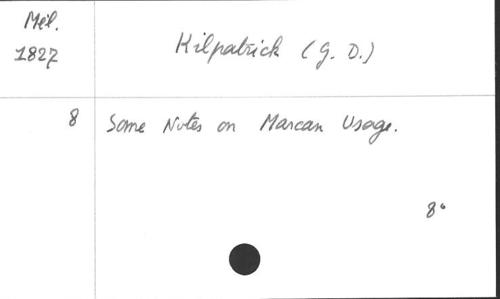 Mél.
1827
Kilpatrick (G. D.)
8
Some Notes on Marcan Usage.
8°